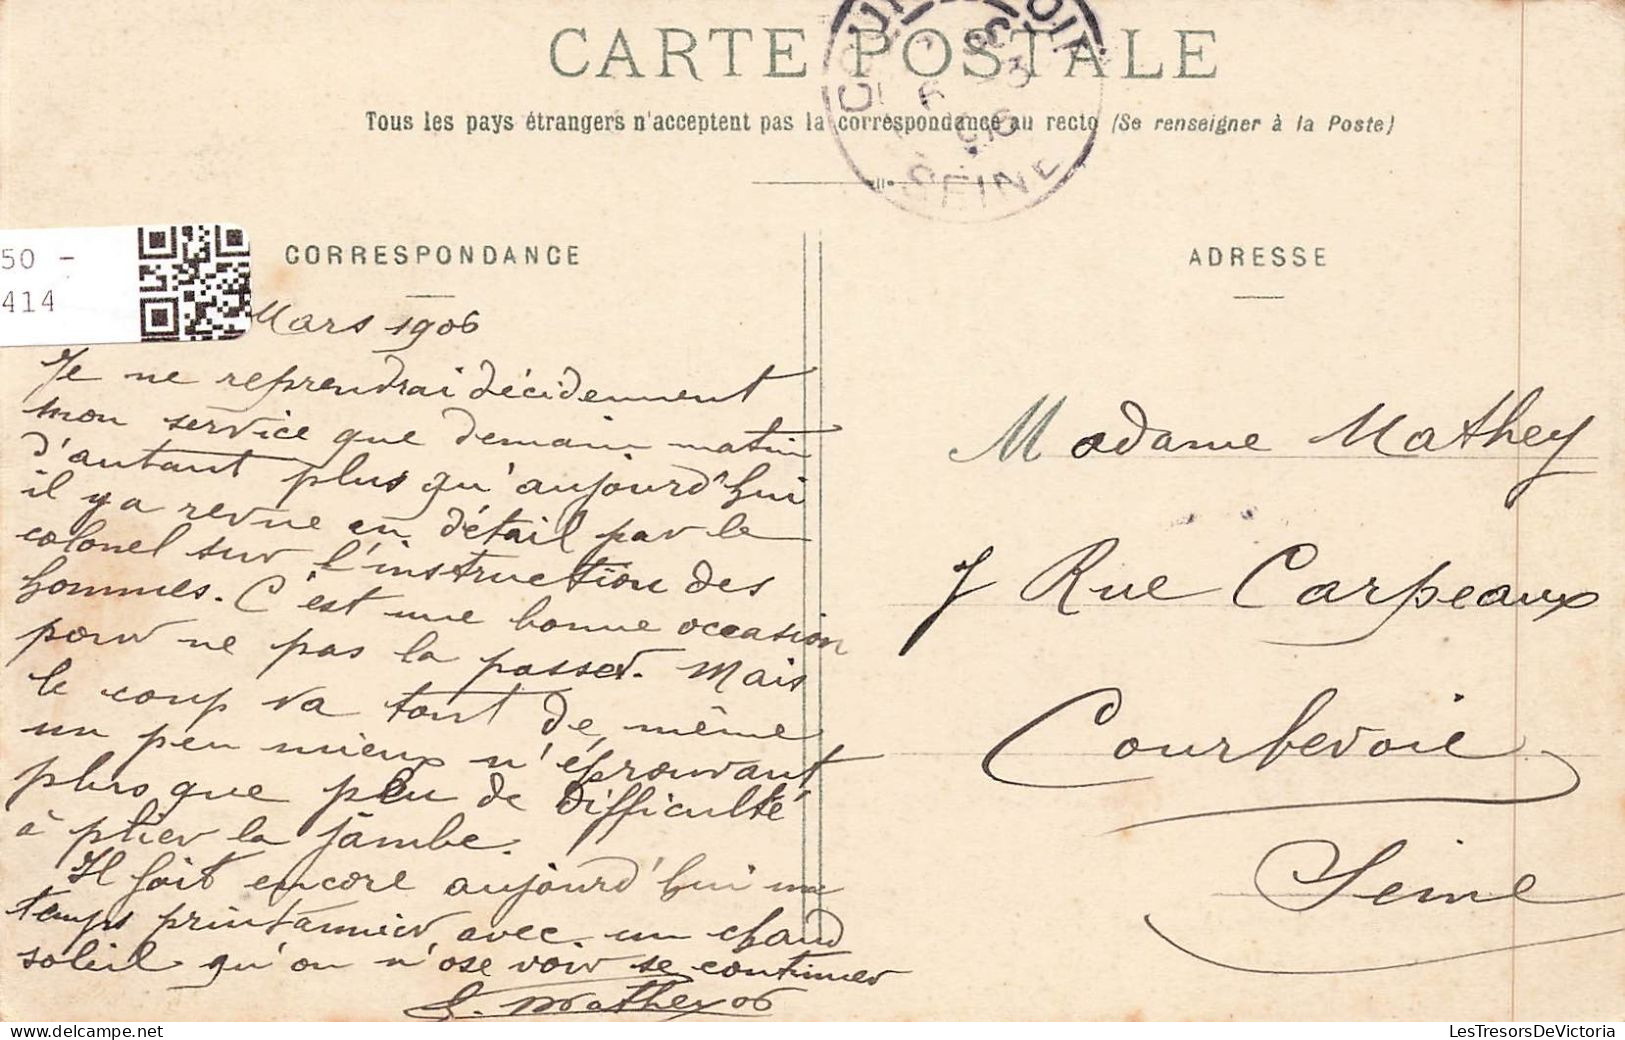 CARTE POSTALE
Tous les pays étrangers n'acceptent pas la correspondance au recto (Se renseigner à la Poste)
SEINE
50 -
414
CORRESPONDANCE
Mars 1906
Je ne reprendrai décidemment
mon service que demain matin
d'autant plus qu'aujourd'hui
il y a revue en détail par le
colonel sur l'instruction des
hommes. C'est une bonne occasion
pour ne pas la passer. Mais
le coup va tout de même
un peu mieux n'éprouvant
plus que peu de difficulté
à plier la jambe.
Il fait encore aujourd'hui un
temps printannier avec un chaud
soleil qu'on n'ose voir se continuer
Mathey 06
ADRESSE
Madame Mathey
7 Rue Carpeaux
Courbevoie
Seine
LesTresorsDeVictoria